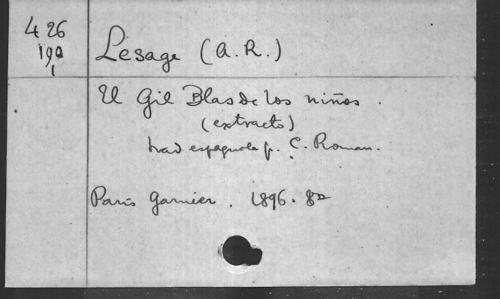 426
190
1
Lesage (A.R.)
El Gil Blas de los niños.
(extracto)
trad espagnole p. C. Roman.
Paris Garnier. 1896. 8º